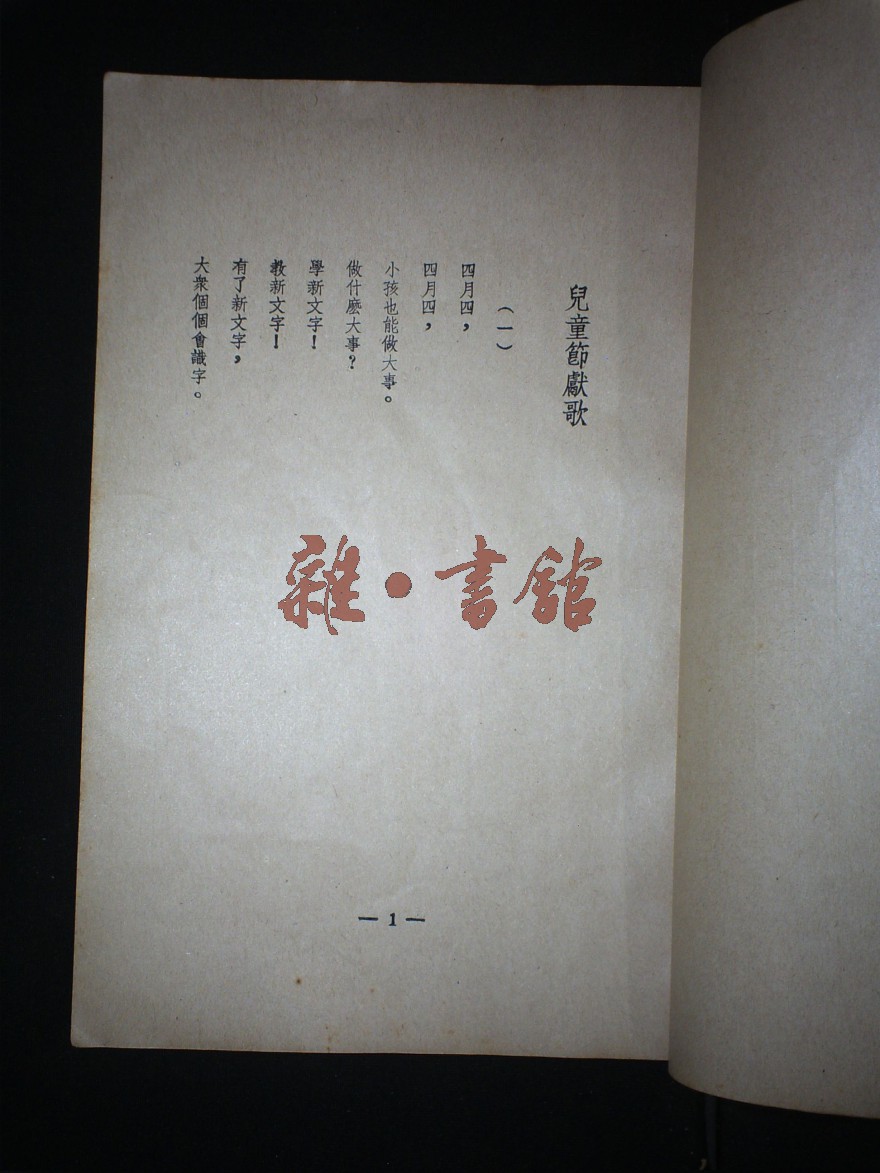 兒童節獻歌
(一)
四月四,
四月四,
小孩也能做大事。
做什麽大事?
學新文字!
敎新文字!
有了新文字,
大衆個個會識字。
雜·書館
— 1 —